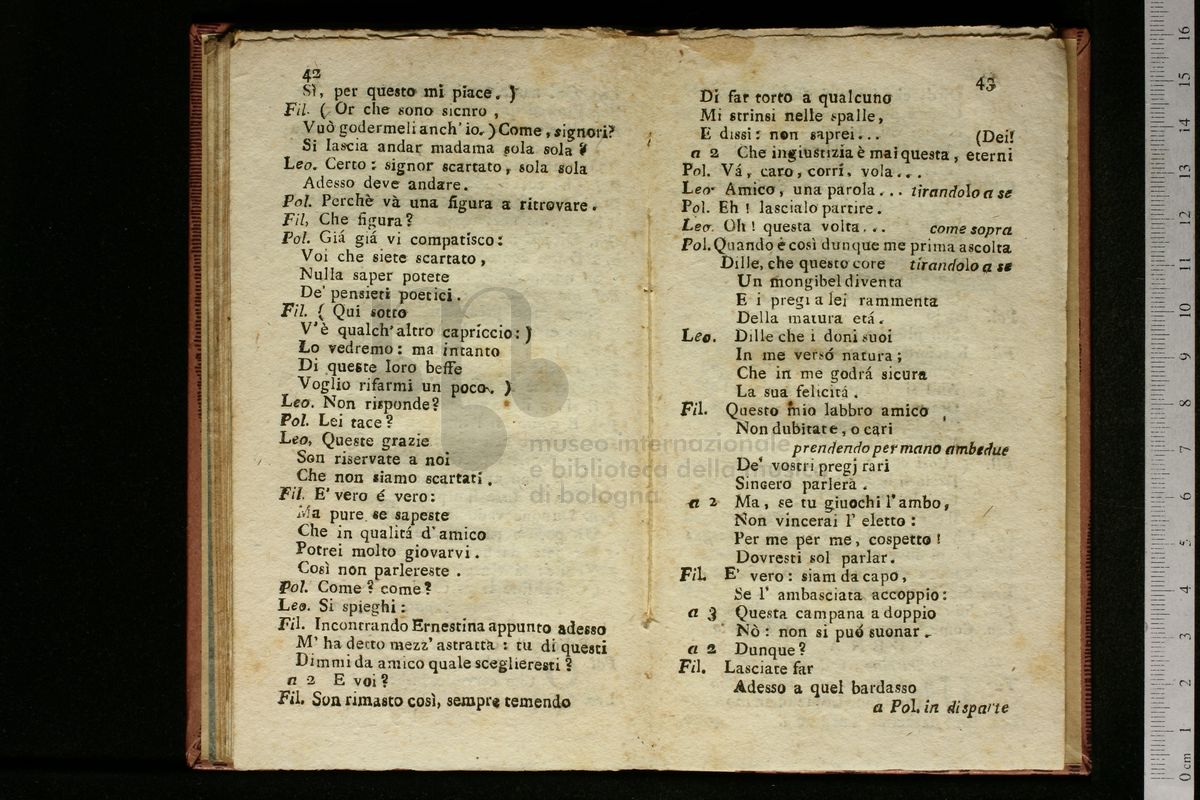 42
Sì, per questo mi piace. )
Fil. ( Or che sono sicnro ,
Vuò godermeli anch' io. ) Come, signori?
Si lascia andar madama sola sola ?
Leo. Certo : signor scartato, sola sola
Adesso deve andare.
Pol. Perchè và una figura a ritrovare.
Fil, Che figura?
Pol. Giá giá vi compatisco:
Voi che siete scartato,
Nulla saper potete
De' pensieri poetici.
Fil. ( Qui sotto
V'è qualch' altro capriccio: )
Lo vedremo: ma intanto
Di queste loro beffe
Voglio rifarmi un poco. )
Leo. Non risponde?
Pol. Lei tace?
Leo, Queste grazie
Son riservate a noi
Che non siamo scartati.
Fil. E' vero é vero:
Ma pure se sapeste
Che in qualitá d'amico
Potrei molto giovarvi.
Così non parlereste.
Pol. Come? come?
Leo. Si spieghi:
Fil. Incontrando Ernestina appunto adesso
M' ha detto mezz' astratta : tu di questi
Dimmi da amico quale sceglieresti?
a 2 E voi?
Fil. Son rimasto così, sempre temendo
43
Di far torto a qualcuno
Mi strinsi nelle spalle,
E dissi: non saprei... (Dei!
a 2 Che ingiustizia è mai questa, eterni
Pol. Vá, caro, corri, vola...
Leo. Amico, una parola... tirandolo a se
Pol. Eh! lascialo partire.
Leo. Oh! questa volta... come sopra
Pol. Quando è così dunque me prima ascolta
Dille, che questo core tirandolo a se
Un mongibel diventa
E i pregi a lei rammenta
Della matura etá.
Leo. Dille che i doni suoi
In me versó natura;
Che in me godrá sicura
La sua felicitá.
Fil. Questo mio labbro amico
Non dubitate, o cari
prendendo per mano ambedue
De' vostri pregj rari
Sincero parlerà.
a 2 Ma, se tu giuochi l'ambo,
Non vincerai l' eletto:
Per me per me, cospetto!
Dovresti sol parlar.
Fil. E' vero: siam da capo,
Se l' ambasciata accoppio:
a 3 Questa campana a doppio
Nò: non si puó suonar.
a 2 Dunque?
Fil. Lasciate far
Adesso a quel bardasso
a Pol. in disparte
museo internazionale
e biblioteca della musica
di bologna
16
15
14
13
12
11
10
9
8
7
6
5
4
3
2
1
0 cm